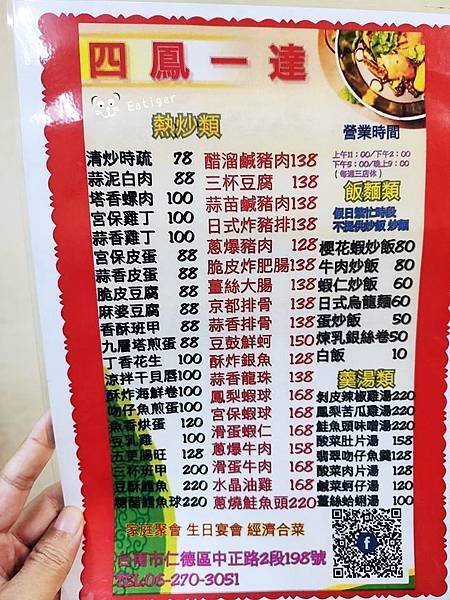 四鳳一達
Eatiger
熱炒類
清炒時疏 78
蒜泥白肉 88
塔香螺肉 100
宮保雞丁 100
蒜香雞丁 100
宮保皮蛋 88
蒜香皮蛋 88
脆皮豆腐 88
麻婆豆腐 88
香酥班甲 88
九層塔煎蛋 88
丁香花生 100
涼拌干貝唇 100
酥炸海鮮卷 100
吻仔魚煎蛋 100
魚香烘蛋 120
豆乳雞 100
五更腸旺 128
三杯班甲 200
豆酥鱈魚 220
糖醋鱈魚球 220
醋溜鹹豬肉 138
三杯豆腐 138
蒜苗鹹豬肉 138
日式炸豬排 138
蔥爆豬肉 128
脆皮炸肥腸 138
薑絲大腸 138
京都排骨 138
蒜香排骨 138
豆豉鮮蚵 150
酥炸銀魚 128
蒜香龍珠 138
鳳梨蝦球 168
宮保蝦球 168
滑蛋蝦仁 168
蔥爆牛肉 158
滑蛋牛肉 168
水晶油雞 168
蔥燒鮭魚頭 220
營業時間
上午11：00/下午2：00
下午5：00/晚上9：00
（每週三店休）
飯麵類
假日繁忙時段
不提供炒飯 炒麵
櫻花蝦炒飯 80
牛肉炒飯 80
蝦仁炒飯 60
日式烏龍麵 60
蛋炒飯 50
煉乳銀絲卷 50
白飯 10
羹湯類
剝皮辣椒雞湯 220
鳳梨苦瓜雞湯 220
鮭魚頭味噌湯 220
酸菜肚片湯 158
翡翠吻仔魚羹 128
酸菜肉片湯 128
鹹菜蚵仔湯 120
薑絲蛤蜊湯 100
家庭聚會 生日宴會 經濟合菜
台南市仁德區中正路2段198號
TEL:06-270-3051